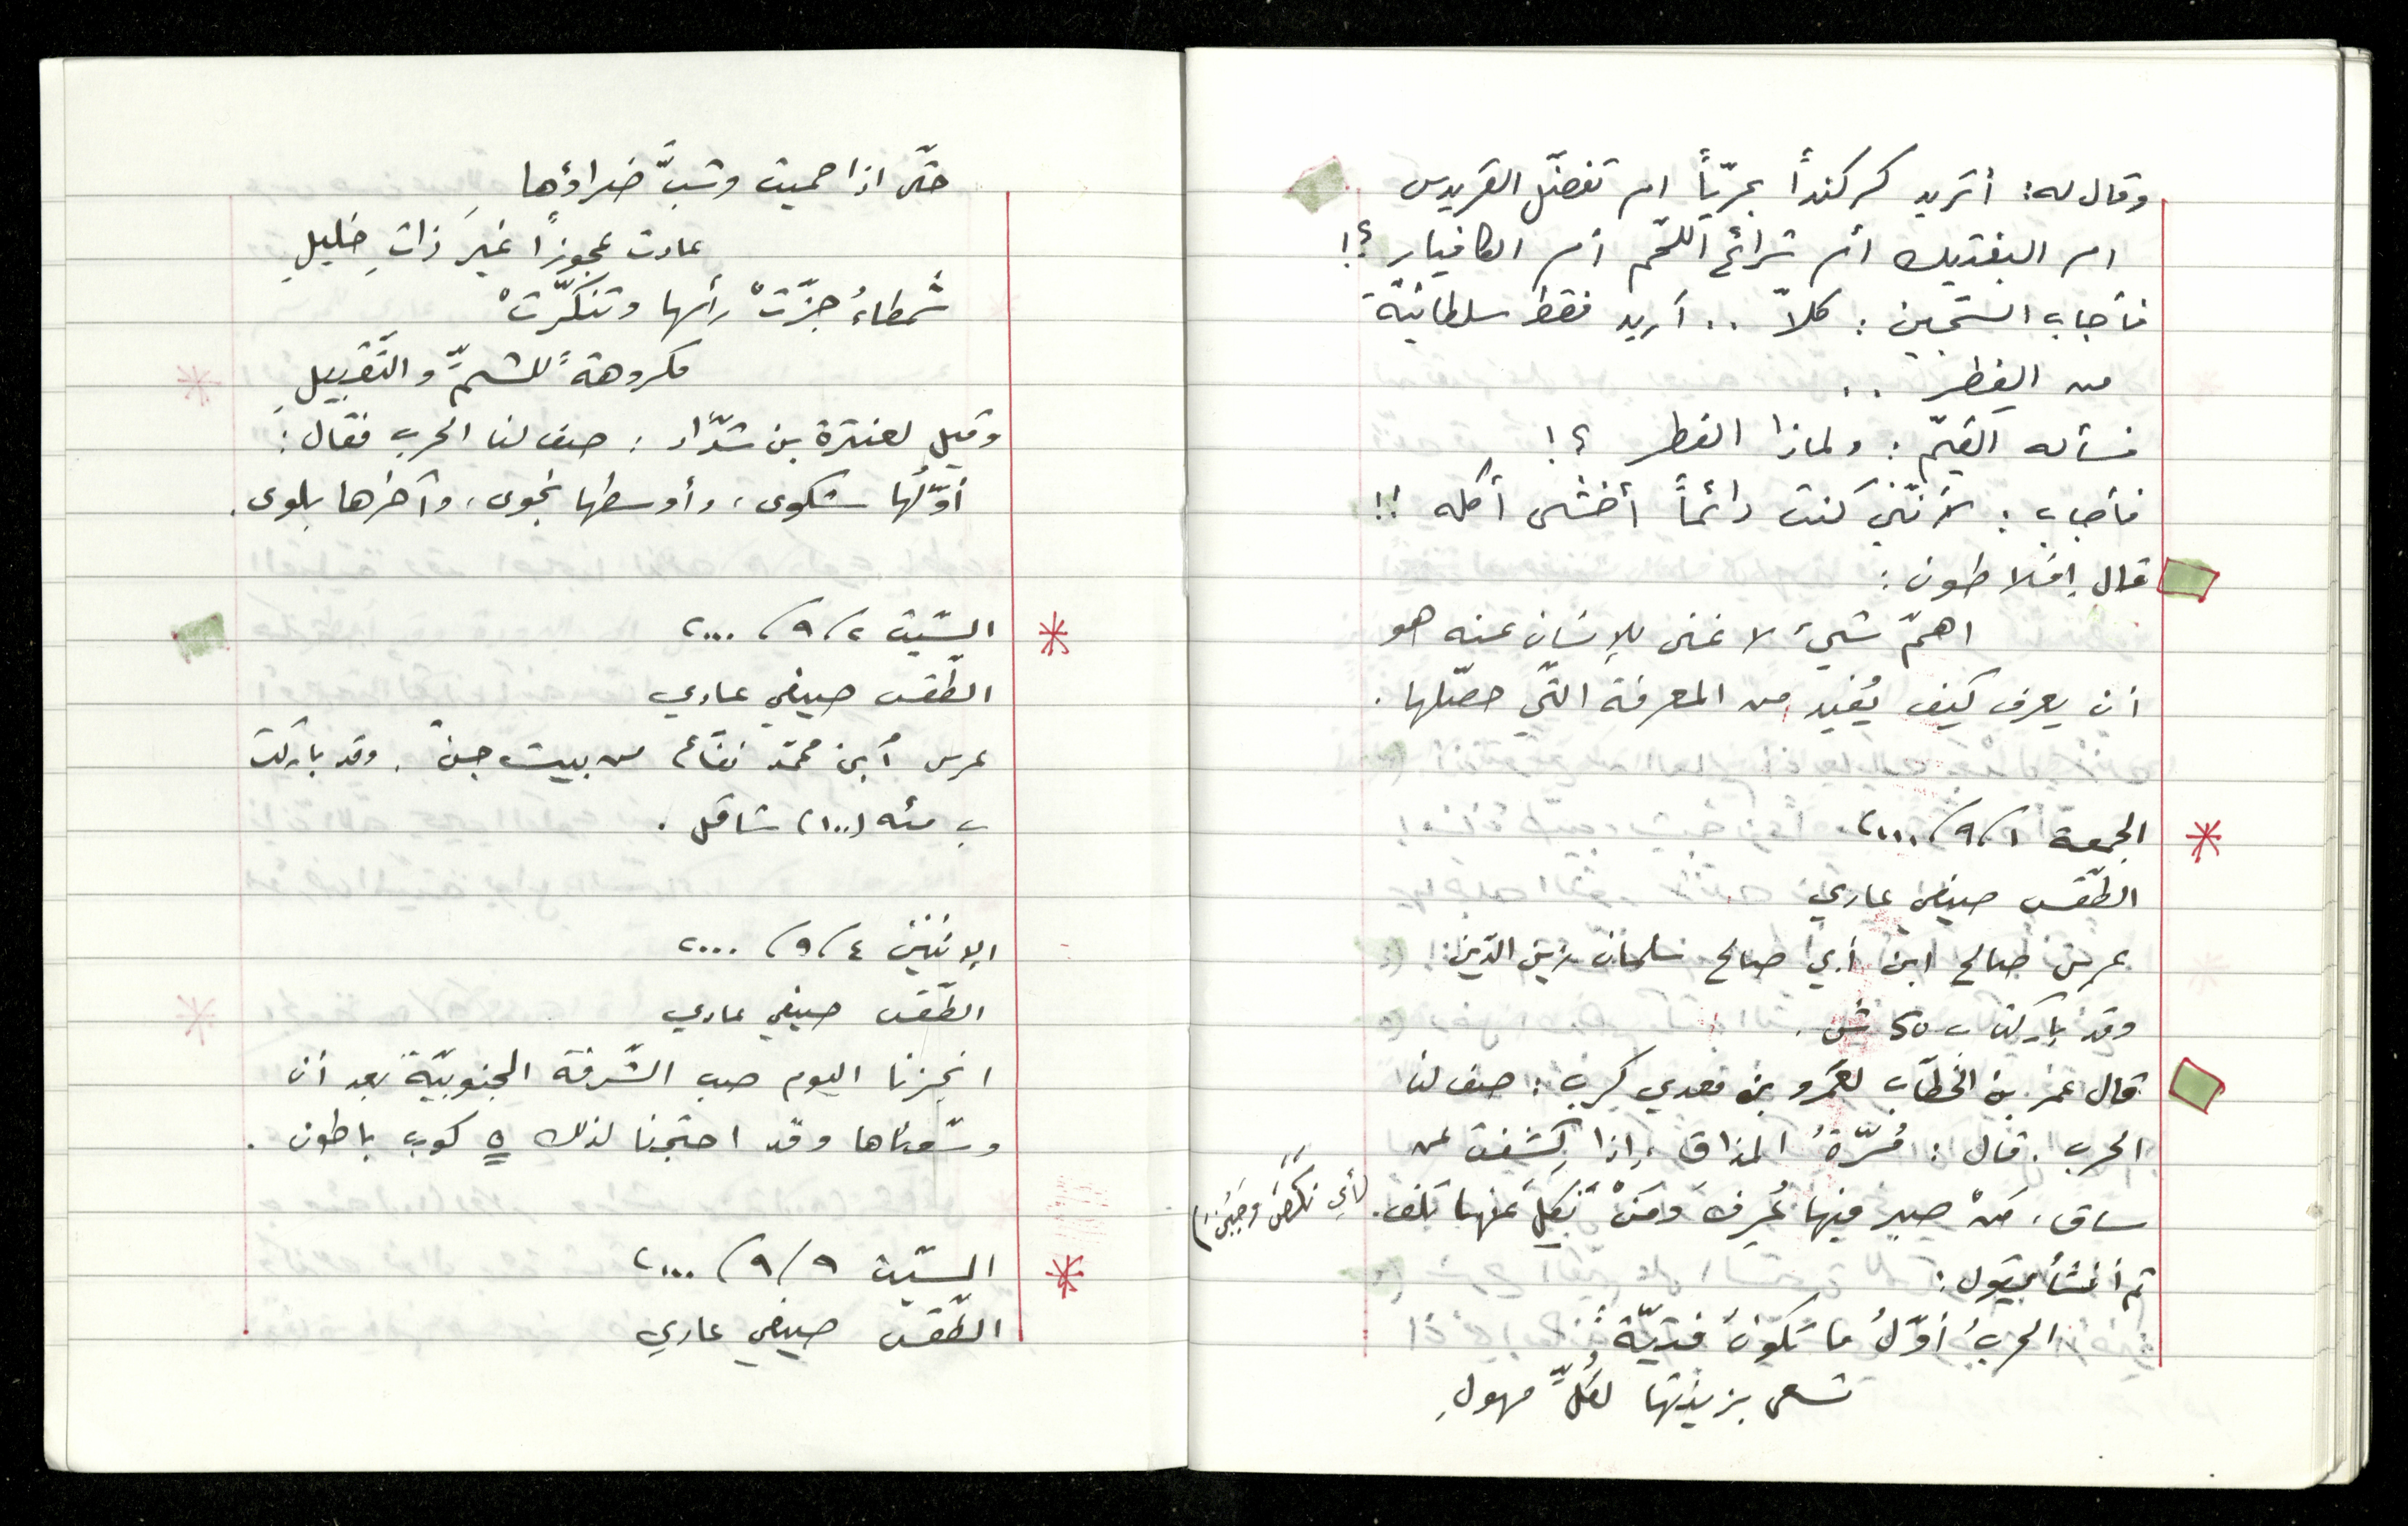 وقال له: أتريد كركنداً بحريّاً ام تفضّل القريدس
ام البفتيك أم شرائح اللّحم أم الكافيار ؟!
فأجاب السّجين : كلاّ .. أريد فقط سلطانيّة
من الفِطر ..
فسأله القيّم : ولماذا الفطر ؟!
فأجاب : لأنّني كنت دائماً أخشى أكله !!
قال افلاطون :
اهمّ شيء لا غنى للإنسان عنه هو
ان يعرف كيف يُفيد من المعرفة التّي حصّلها .
الجمعة ١/ ٩/ ٢٠٠٠
الطّقس صيفي عادي
عرس صالح ابن أبي صالح سلمان زين الدّين
وقد باركت ب ٥٠ ش .
قال عمر بن الخطّاب لعمرو بن معدي كرب : صف لنا
الحرب . قال : مُرّةُ المذاق ، إذا كشفت عن
ساق ، مَنْ صبر فيها عُرِف ومَنْ نَكِلَ عنها تلف . (أي نكَصَ وجَبُن)
ثم أنشأ يقول :
الحربُ أوّلُ ما تكونُ فتيّةً
تسعى بزينتها لكلِّ جهولِ
حتّى اذا حميت وشبَّ ضراؤها
عادت عجوزاً غيرَ ذاتِ خليلِ
شمطاءُ جزّتْ رأسها وتنكّرتْ
مكروهةً للشمِّ والتّقبيلِ
وقيل لعنترة بن شدّاد : صف لنا الحرب فقال :
أوّلُها شكوى ، وأوسطها نجوى ، وآخرها بلوى .
السّبت ٢/ ٩/ ٢٠٠٠
الطّقس صيفي عادي
عرس ابن محمّد نفّاع من بيت جن . وقد باركت
ب مئه (١٠٠) شاقل .
الإثنين ٤/ ٩/ ٢٠٠٠
الطّقس صيفي عادي
انجزنا اليوم صب الشّرفة الجنوبيّة بعد أن
وسّعناها وقد احتجنا لذلك ٥ كوب باطون .
السّبت ٩/ ٩/ ٢٠٠٠
الطّقس صيفي عادي